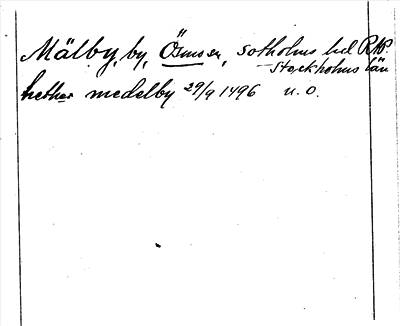 Mälby, by, Ösmo sn, Sotholms hd RAP
Stockholms län
hethær medelby 29/9 1496 u. o.